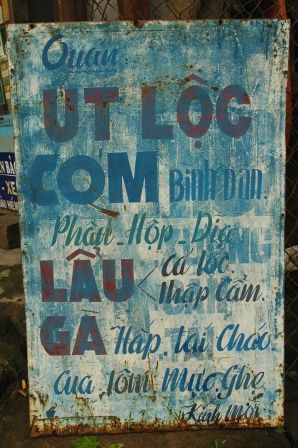 Quán
ÚT LỘC
CƠM Bình Dân.
Phần_Hộp_Dĩa
LẨU Cá lóc.
Thập Cẩm.
GÀ Hấp, tái Cháo
Cua Tôm Mực Ghẹ
Kính Mời